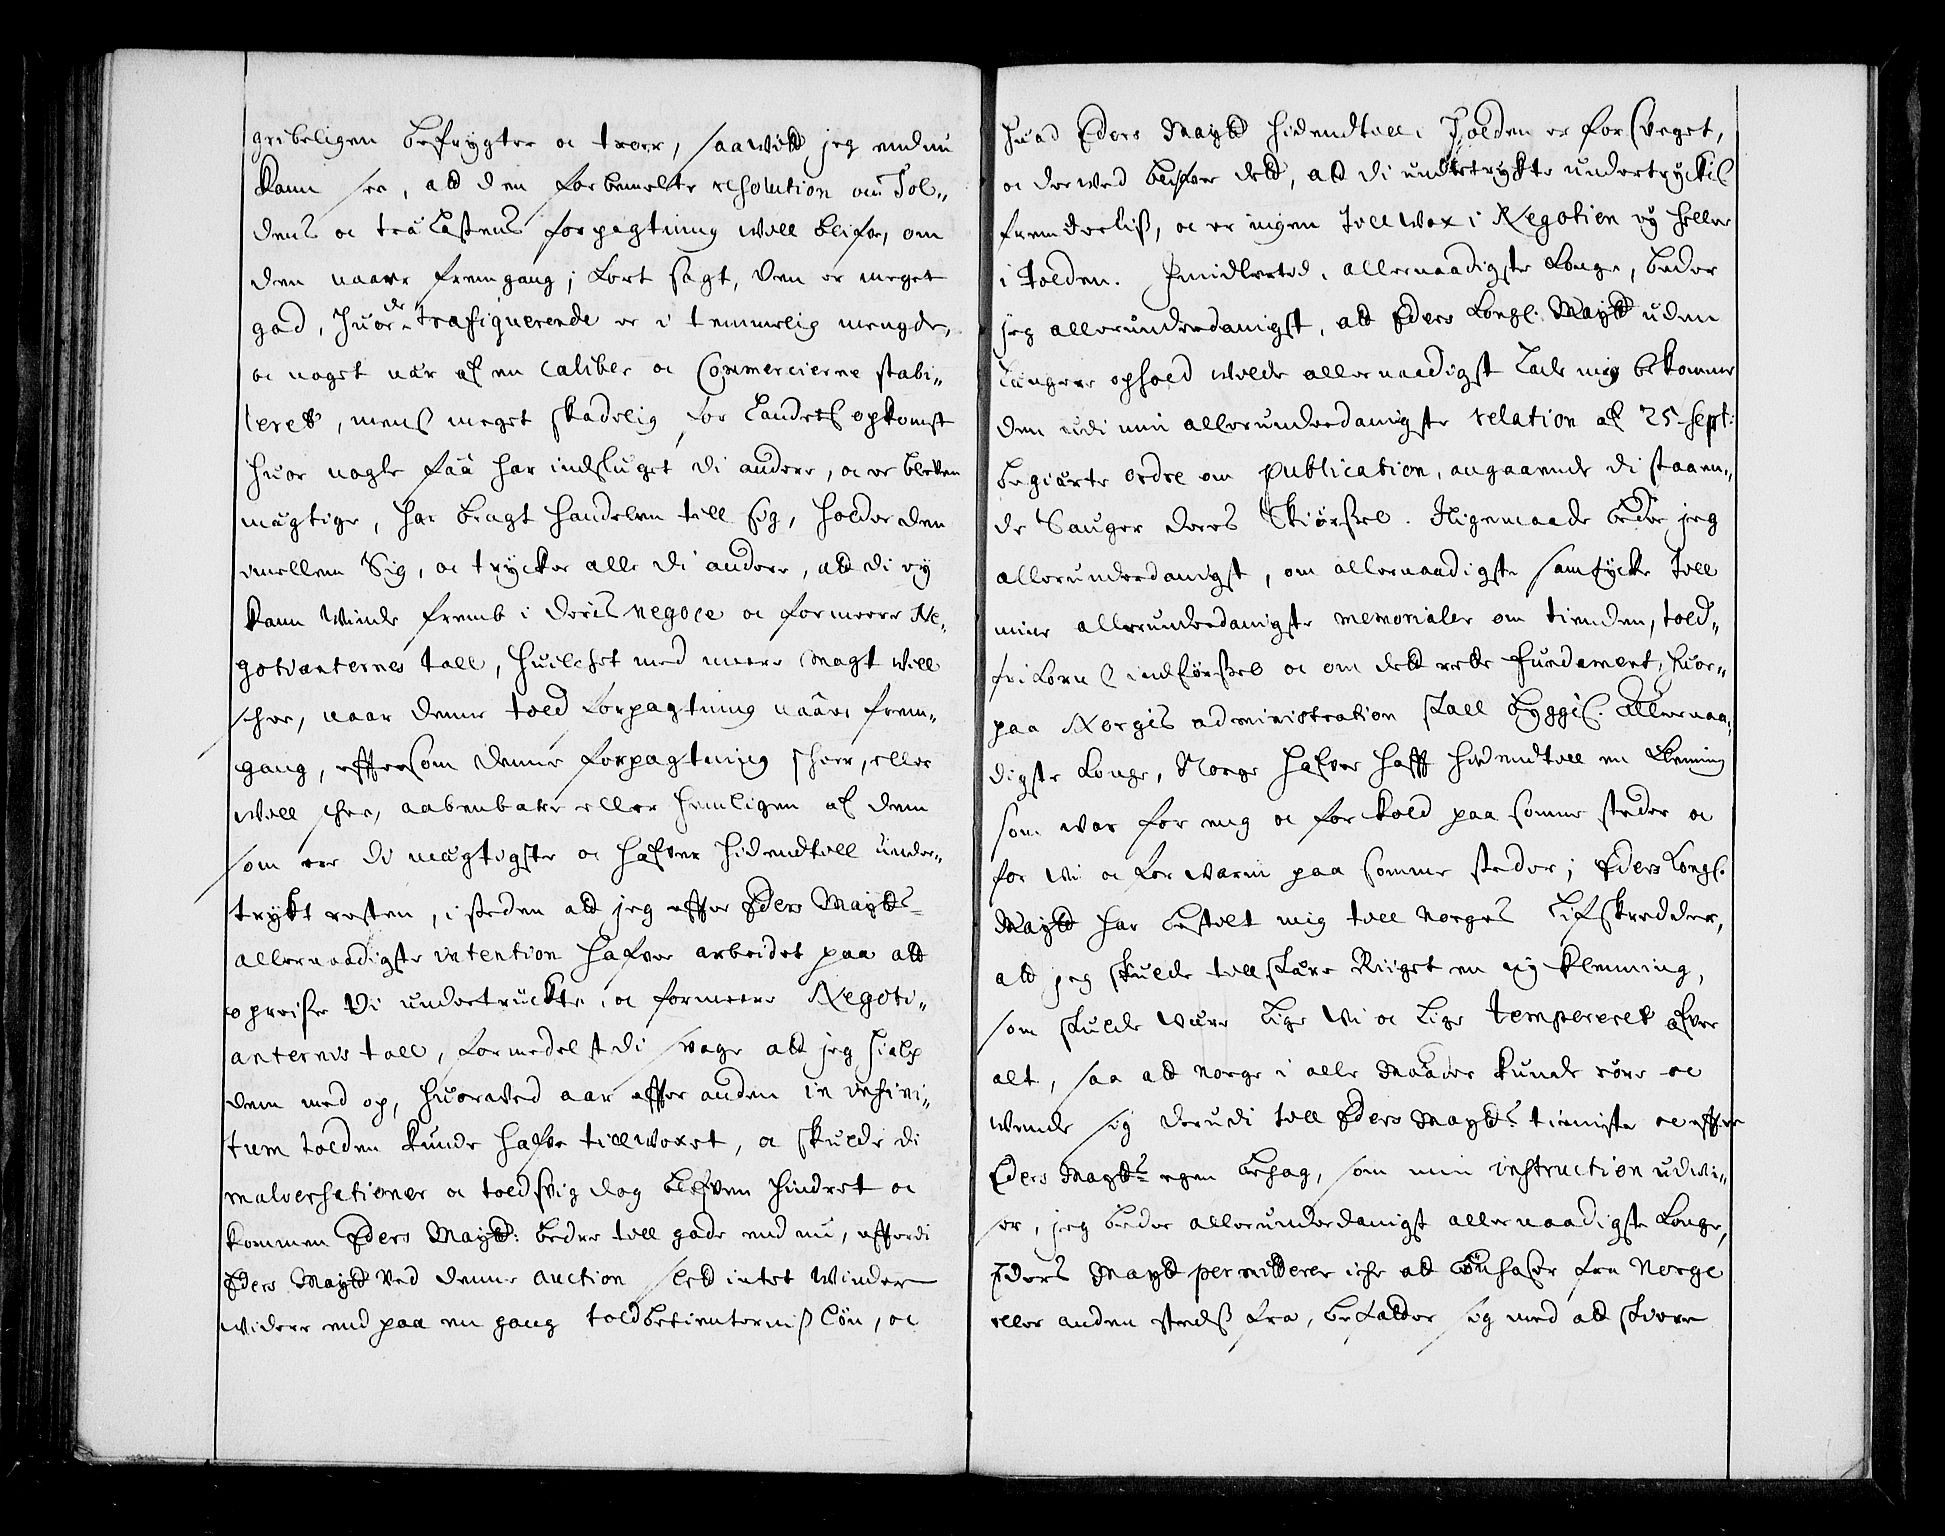 gribeligen befrygter oc troer, saawitt jeg endnu
kann see, att den forbemelte resolution om Tol„
dens oc trälastens forpagtning will blifve, om
den naaer fremgang; kort sagt, den er meget
god, huor de trafiquerende er i temmelig mengde,
oc noget nær af en caliber oc Commercierne stabi„
leret, mens meget skadelig for Landets opkomst
huor nogle faa har indsluget di andre, oc er bleven
mägtige, har bragt handelen till sig, holder den
imellem Sig, oc trycker alle di andere, att di ey
kann Winde fremb i deris negoce oc formeere Ne„
gotianternes tall, huilchet med meere Magt will
schee, naar denne told forpagtning naaer frem„
gang, efftersom denne forpagtning scheer, eller
will schee, aabenbare eller hemligen af dem
som ere di mägtigste oc hafver hidendtill under„
trykt resten, i steden att jeg effter Eders Maytts
allernaadigste intention hafver arbeidet paa att
opreise di undertrückte, oc formeere Negoti„
anternis tall, formedelst di svage att jeg hialp
dem med op, huorved aar effter anden in infini„
tum tolden kunde hafve tillvoxet, oc skulde di
malversationer oc toldsvig dog blefven hindret oc
kommen Eders Maytt: bedre till gode end nu, efferdi
Eders Maytt ved denne auction slett intet Winder
widere end paa en gang toldbetienterniß lön, oc
huad Eders Maytt hidendtill i Tolden er forsveget,
oc derved blifver dett, att di undertrykte undertryckis
fremdeeliß, oc er ingen tillwox i Negotien ey heller
i tolden. Imidlertid, allernaadigste Konge, beder
jeg allerunderdanigst, att Eders Kongl. Maytt uden
Længere ophold wilde allernaadigst Lade mig bekomme
den udi min allerunderdanigste relation af 25 sept:
begiärte ordre om publication, angaaende di staaen„
de Sauger deres Skiørßel. Iligemaade beder jeg
allerunderdanigst, om allernaadigste samtycke till
mine allerunderdanigste memorialer om tienden, told„
fri korns indförßel oc om dett rette fundament, huor„
paa Norgis administration skall bÿggis. Allernaa„
digste Konge, Norge hafver hafft hidendtill en Klemning
som war for eng oc for kold paa somme steder oc
for wi oc for warm paa somme steder; Eders Kongl.
Maytt har bestelt mig till Norges Lifskredder,
att jeg skulde tillskäre Riiget en ny klemning,
som skulde være Lige wi oc Lige tempereret ofver
alt, saa att Norge i alle Maader kunde röre oc
wende sig derudi till Eders Maytts tieniste oc effter
Eders Maytts egen behag, som min instruction udwi„
ser, jeg beder allerunderdanigst allernaadigste Konge,
Eders Maytt permitterer iche att bönhaser fra Norge
eller anden stedß fra, befatter sig med att skiere